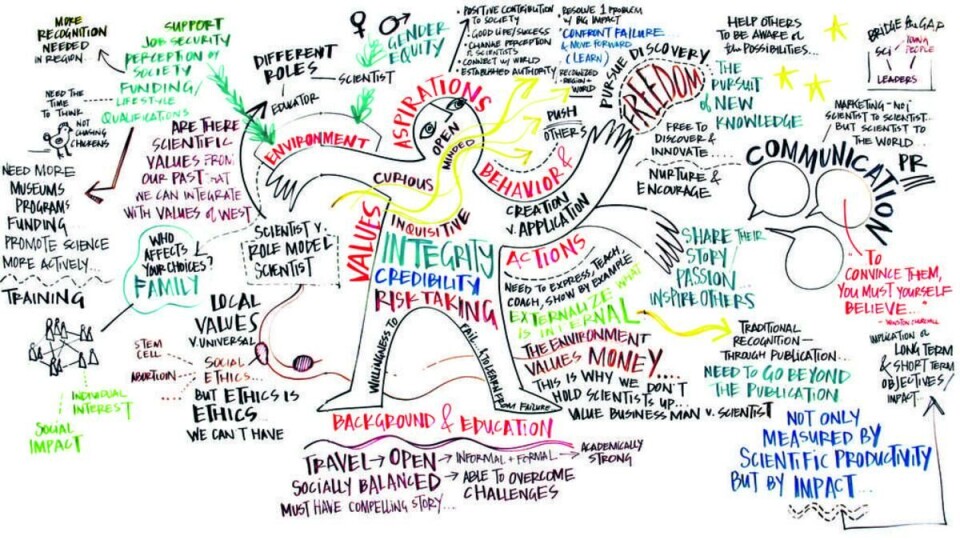 MORE
RECOGNITION
NEEDED
IN REGION...
SUPPORT
JOB SECURITY
PERCEPTION by
SOCIETY
FUNDING/
LIFESTYLE
QUALIFICATIONS
NEED THE
TIME
TO THINK
NOT
CHASING
CHICKENS
NEED MORE
MUSEUMS
PROGRAMS
FUNDING
PROMOTE SCIENCE
MORE ACTIVELY...
TRAINING
INDIVIDUAL
INTEREST
SOCIAL
IMPACT
DIFFERENT
ROLES
SCIENTIST
EDUCATOR
GENDER
EQUITY
ENVIRONMENT
ARE THERE
SCIENTIFIC
VALUES FROM
OUR PAST THAT
WE CAN INTEGRATE
WITH VALUES of WEST
WHO
AFFECTS
YOUR CHOICES?
FAMILY
SCIENTIST V.
ROLE MODEL
SCIENTIST
LOCAL
VALUES
V. UNIVERSAL
STEM
CELL
ABORTION
SOCIAL
ETHICS...
BUT ETHICS IS
ETHICS...
WE CAN'T HAVE
ASPIRATIONS
POSITIVE CONTRIBUTION
TO SOCIETY
GOOD LIFE/SUCCESS
CHANGE PERCEPTION
of SCIENTISTS
CONNECT w/ WORLD
ESTABLISHED AUTHORITY
RECOGNIZED
REGION
WORLD
RESOLVE 1 PROBLEM
w/ BIG IMPACT
CONFRONT FAILURE...
& MOVE FORWARD
(LEARN)
OPEN
MINDED
CURIOUS
INQUISITIVE
VALUES
INTEGRITY
CREDIBILITY
RISK TAKING
WILLINGNESS TO
FAIL & TO LEARN FROM FAILURE
PUSH
OTHERS
BEHAVIOR &
CREATION
V. APPLICATION
ACTIONS
NEED TO EXPRESS, TEACH,
COACH, SHOW by EXAMPLE
EXTERNALIZE WHAT
IS INTERNAL
THE ENVIRONMENT
VALUES MONEY...
THIS IS WHY WE DON'T
HOLD SCIENTISTS UP...
VALUE BUSINESS MAN v. SCIENTIST
BACKGROUND & EDUCATION
TRAVEL → OPEN → INFORMAL + FORMAL → ACADEMICALLY
STRONG
SOCIALLY BALANCED → ABLE TO OVERCOME
CHALLENGES
MUST HAVE COMPELLING STORY...
PURSUE DISCOVERY
FREEDOM
HELP OTHERS
TO BE AWARE of
the POSSIBILITIES...
THE
PURSUIT
of NEW
KNOWLEDGE
FREE TO
DISCOVER &
INNOVATE...
NURTURE &
ENCOURAGE
BRIDGE the GAP
SCI
YOUNG
PEOPLE
LEADERS
MARKETING - NOT
SCIENTIST TO SCIENTIST...
BUT SCIENTIST TO
THE WORLD...
PR
COMMUNICATION
SHARE THEIR
STORY
PASSION
INSPIRE OTHERS
"TO
CONVINCE THEM,
YOU MUST YOURSELF
BELIEVE."
- WINSTON CHURCHILL
TRADITIONAL
RECOGNITION—
THROUGH PUBLICATION...
NEED TO GO BEYOND
THE PUBLICATION
IMPLICATION of
LONG TERM
& SHORT TERM
OBJECTIVES/
IMPACT...
NOT ONLY
MEASURED BY
SCIENTIFIC PRODUCTIVITY
BUT BY IMPACT...